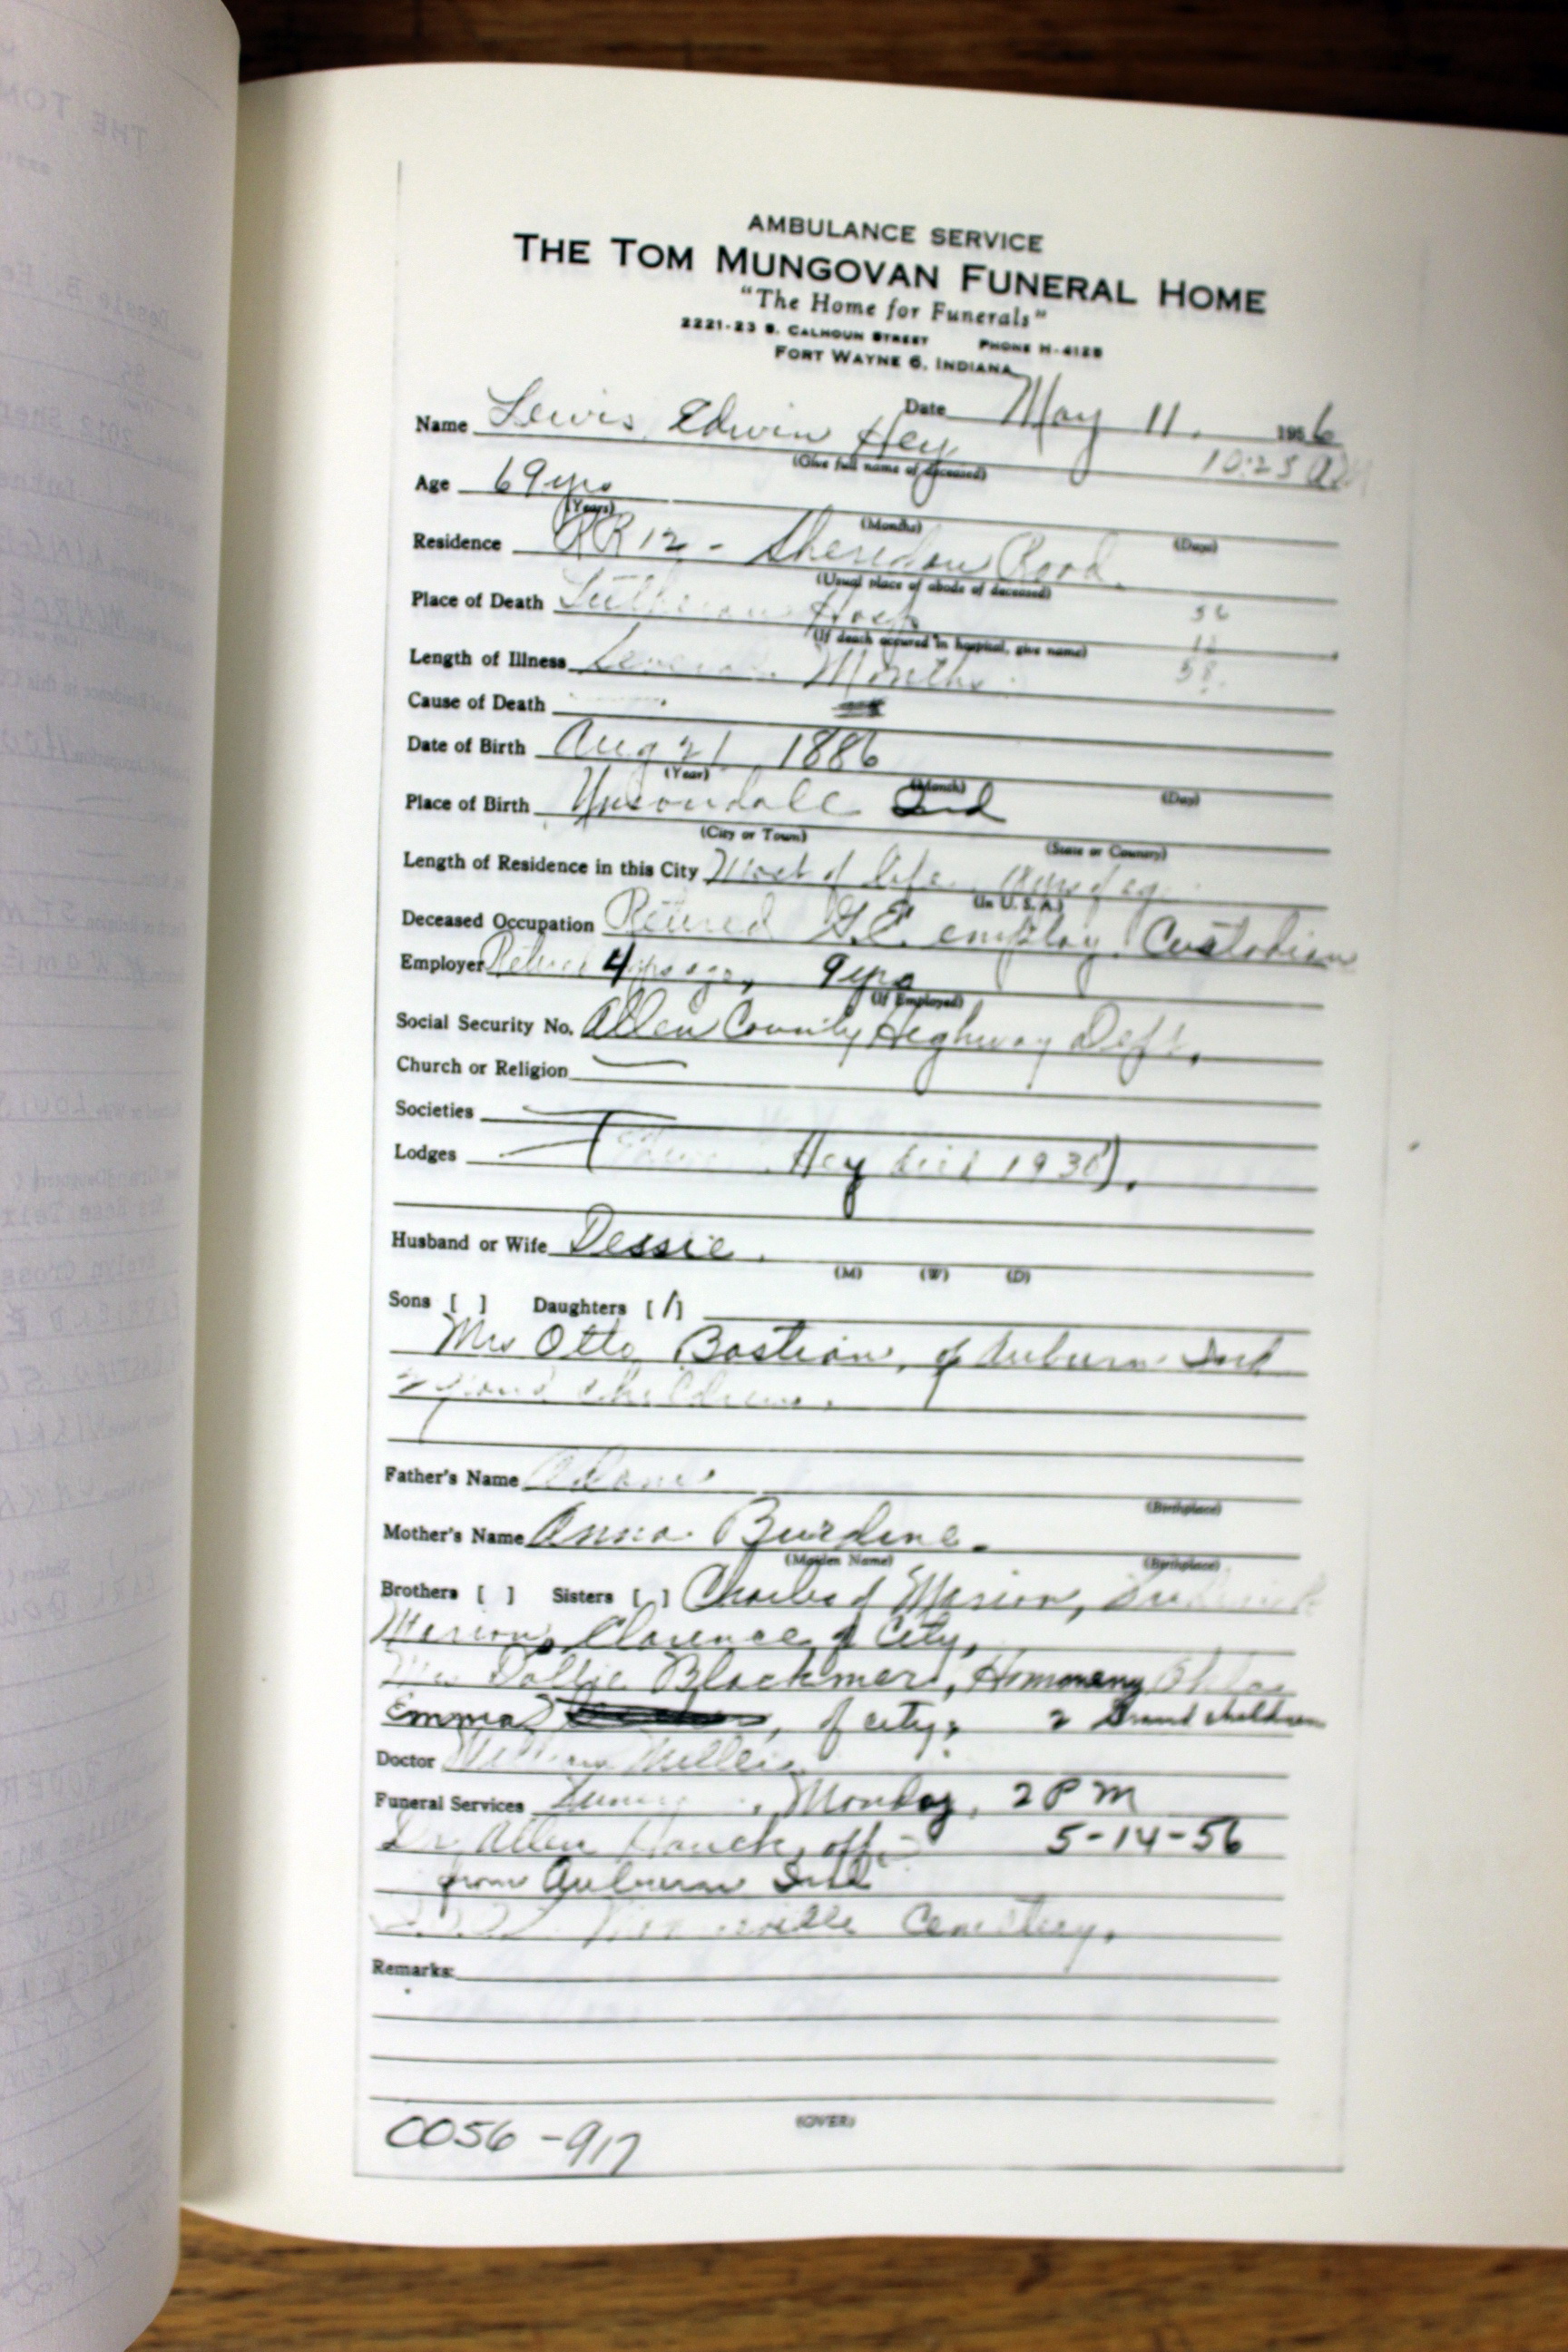 AMBULANCE SERVICE
THE TOM MUNGOVAN FUNERAL HOME
"The Home for Funerals"
2221-23 S. CALHOUN STREET PHONE H-4128
FORT WAYNE 6, INDIANA
Date May 11, 1956
Name Lewis Edwin Hey 10:25 AM
(Give full name of deceased)
Age 69 yrs
(Years) (Months) (Days)
Residence RR 12 - Sheridan Road.
(Usual place of abode of deceased)
Place of Death Lutheran Hosp
(If death occured in hospital, give name)
Length of Illness Several Months
Cause of Death
Date of Birth Aug 21 1886
(Year) (Month) (Day)
Place of Birth Uniondale Ind
(City or Town) (State or Country)
Length of Residence in this City Most of life
(In U. S. A.)
Deceased Occupation Retired G.E. employ. Custodian
Employer Retired 4 yrs ago, 9 yrs
(If Employed)
Social Security No. Allen County Highway Dept.
Church or Religion —
Societies —
Lodges — ( Hey died 1936).
Husband or Wife Dessie.
(M) (W) (D)
Sons [ ] Daughters [1]
Mrs Otto Bastian, of Auburn Ind
2 grand children.
Father's Name Adam
(Birthplace)
Mother's Name Anna Burdine.
(Maiden Name) (Birthplace)
Brothers [ ] Sisters [ ] Charles of Marion, Frederick
Marion, Clarence of City,
Mrs Dollie Blackmer, Hominy Okla
Emma , of city, 2 Grand children
Doctor William Miller
Funeral Services , Monday, 2 P M
Dr Allen Hauck, off. 5-14-56
from Auburn Ind
Cemetery.
Remarks:
(OVER)
CO56-917